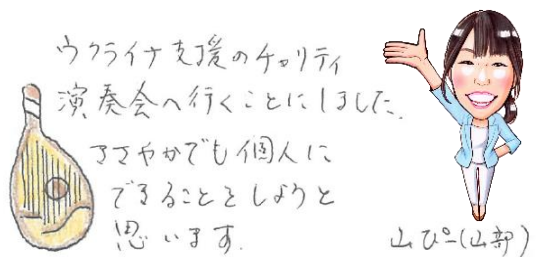 ウクライナ支援のチャリティ
演奏会へ行くことにしました。
ささやかでも個人に
できることをしようと
思います。
山ぴー(山部)